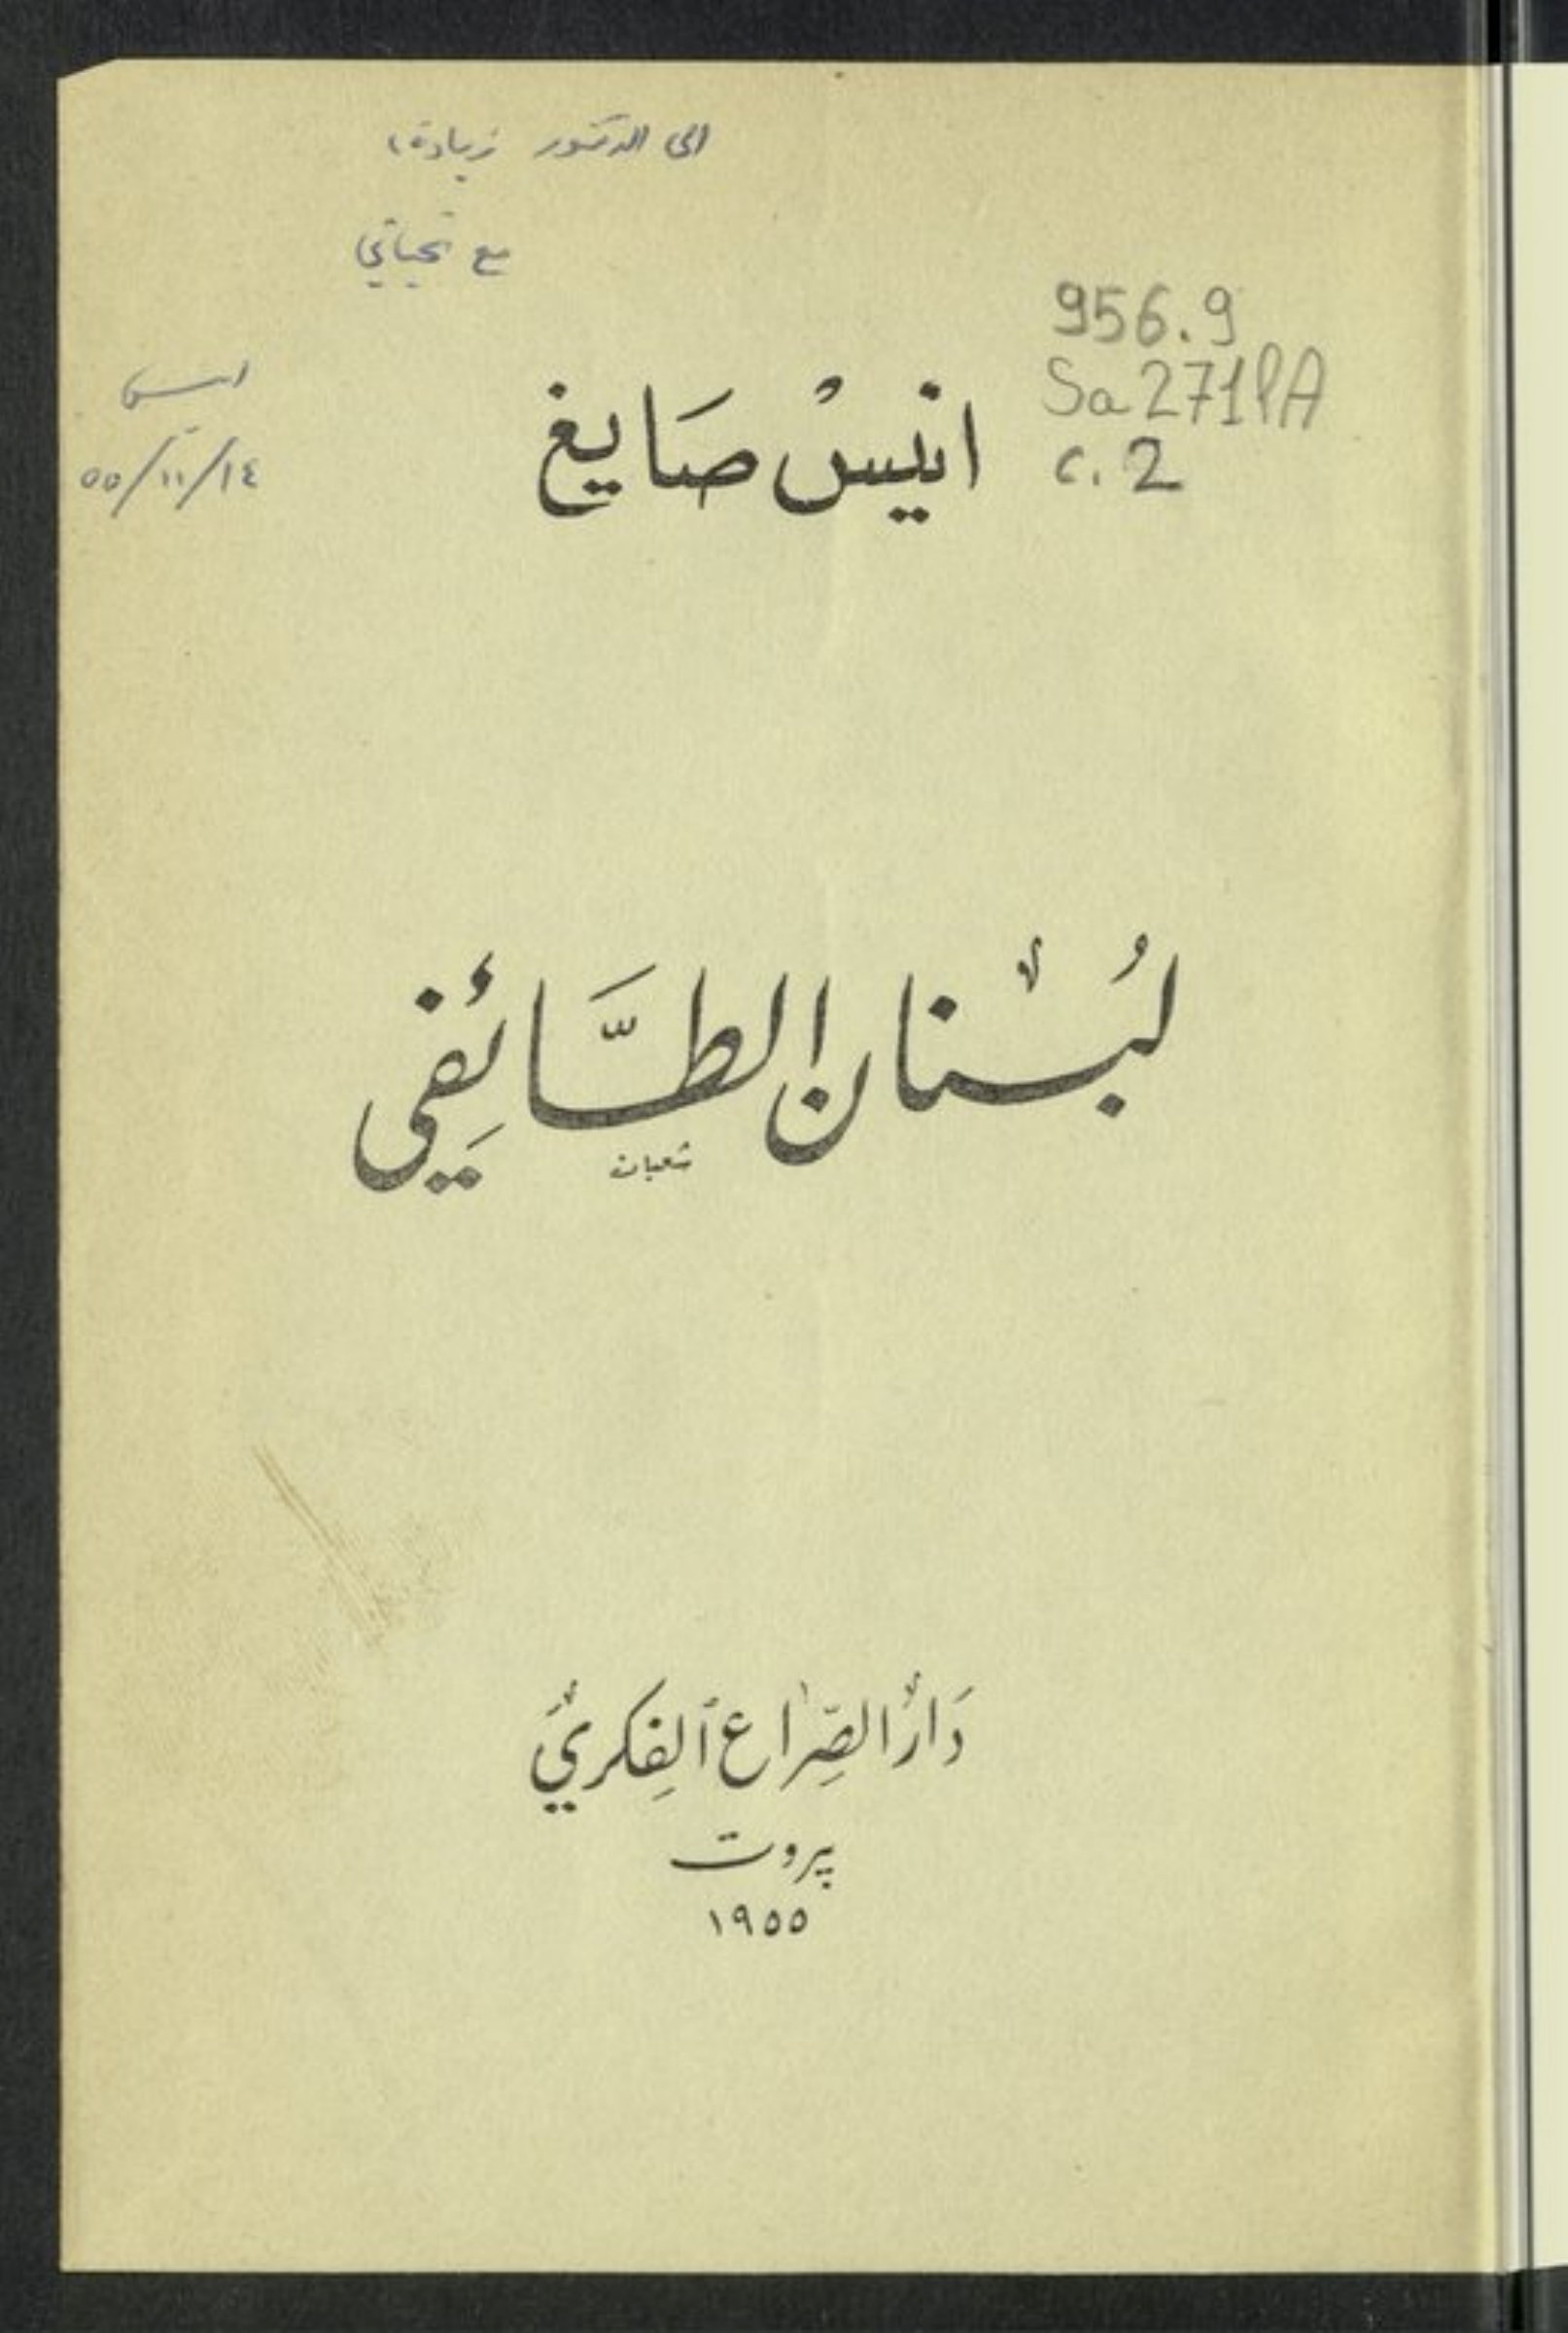 الى الدكتور زيادة،
مع تحياتي
انيس
١٤/١١/٥٥
956.9
Sa271lA
c.2
انيسْ صَايغ
لُبْنان الطَّائِفي
شعبان
دَارُ الصِّرَاع ٱلفِكريّ
بيروت
١٩٥٥